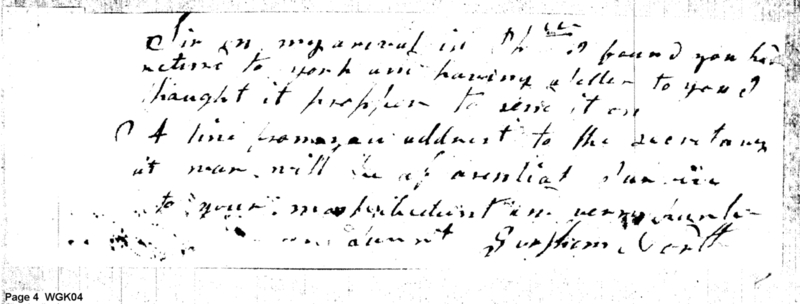 Sir on my arival in Ph I found you had
return to york and having a letter to you I
thaught it propper to send it on
A line from you addrest to the secretary
at war will be of esential Service
to your most obedient and very humble
Servnt
Page 4 WGK04